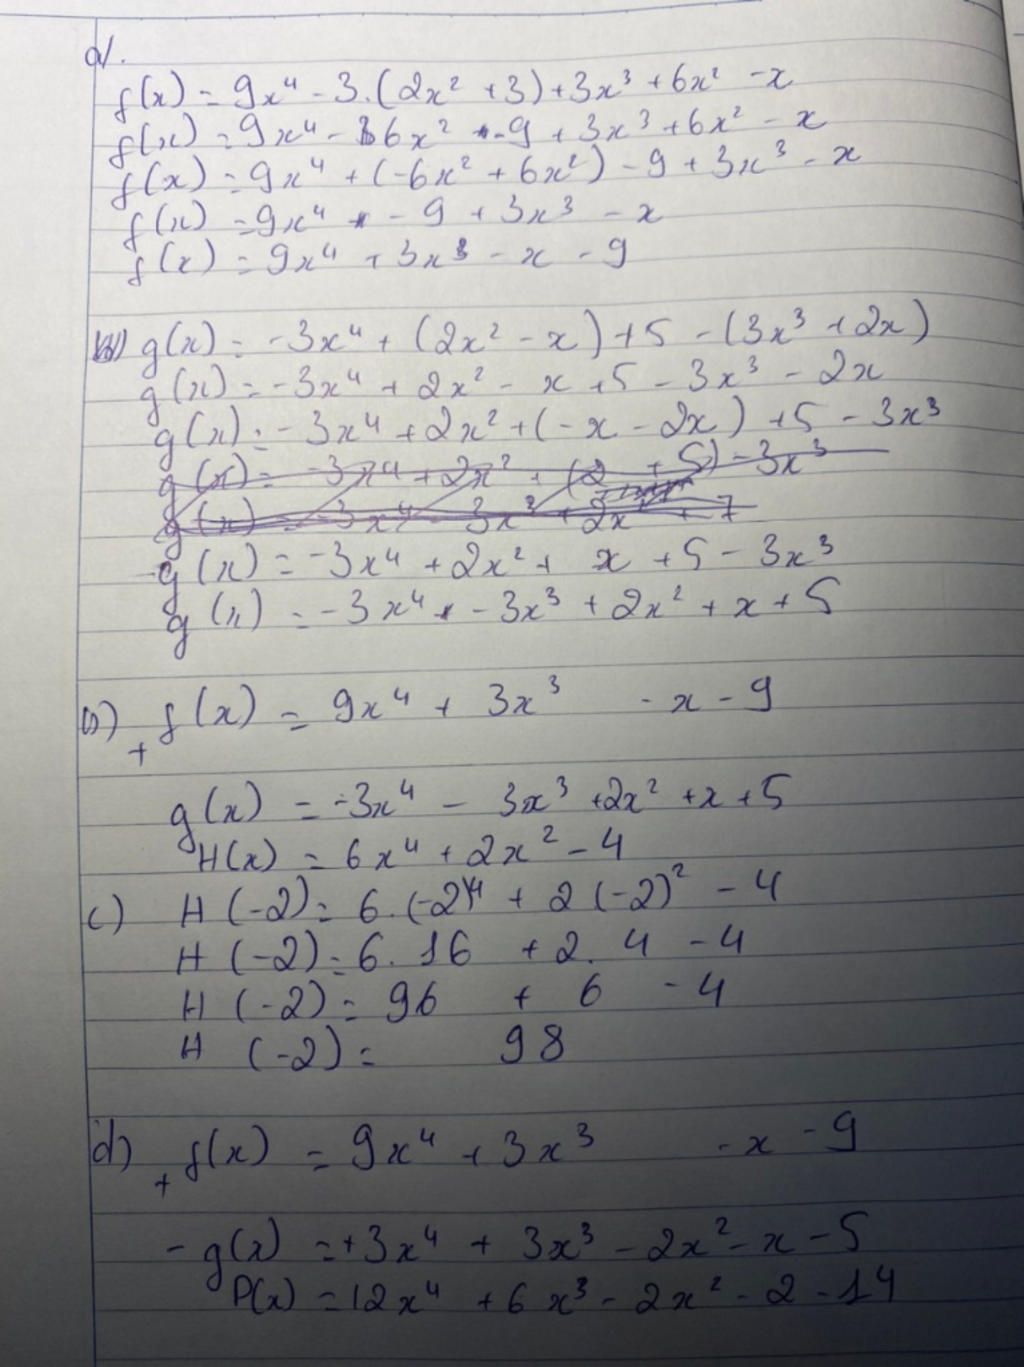 a/.
f(x) = 9x⁴ - 3.(2x² + 3) + 3x³ + 6x² - x
f(x) = 9x⁴ - 6x² - 9 + 3x³ + 6x² - x
f(x) = 9x⁴ + (-6x² + 6x²) - 9 + 3x³ - x
f(x) = 9x⁴ - 9 + 3x³ - x
f(x) = 9x⁴ + 3x³ - x - 9
g(x) = -3x⁴ + (2x² - x) + 5 - (3x³ + 2x)
g(x) = -3x⁴ + 2x² - x + 5 - 3x³ - 2x
g(x) = -3x⁴ + 2x² + (-x - 2x) + 5 - 3x³
g(x) = -3x⁴ + 2x² + (2 + 5) - 3x³
g(x) = -3x⁴ - 3x³ + 2x² + 7
g(x) = -3x⁴ + 2x² + x + 5 - 3x³
g(x) = -3x⁴ - 3x³ + 2x² + x + 5
b) f(x) = 9x⁴ + 3x³ - x - 9
+
g(x) = -3x⁴ - 3x³ + 2x² + x + 5
H(x) = 6x⁴ + 2x² - 4
c) H(-2) = 6.(-2)⁴ + 2(-2)² - 4
H(-2) = 6.16 + 2.4 - 4
H(-2) = 96 + 6 - 4
H(-2) = 98
d) f(x) = 9x⁴ + 3x³ - x - 9
+
-g(x) = +3x⁴ + 3x³ - 2x² - x - 5
P(x) = 12x⁴ + 6x³ - 2x² - 2 - 14